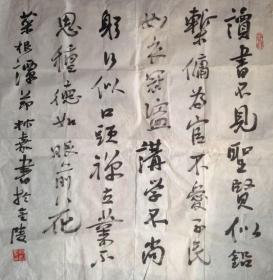 讀書不見聖賢似鉛
槧傭為官不愛子民
如衣冠盜講学不尚
躬行似口頭禪立業不
思種德如眼前花
菜根譚節 書於金陵